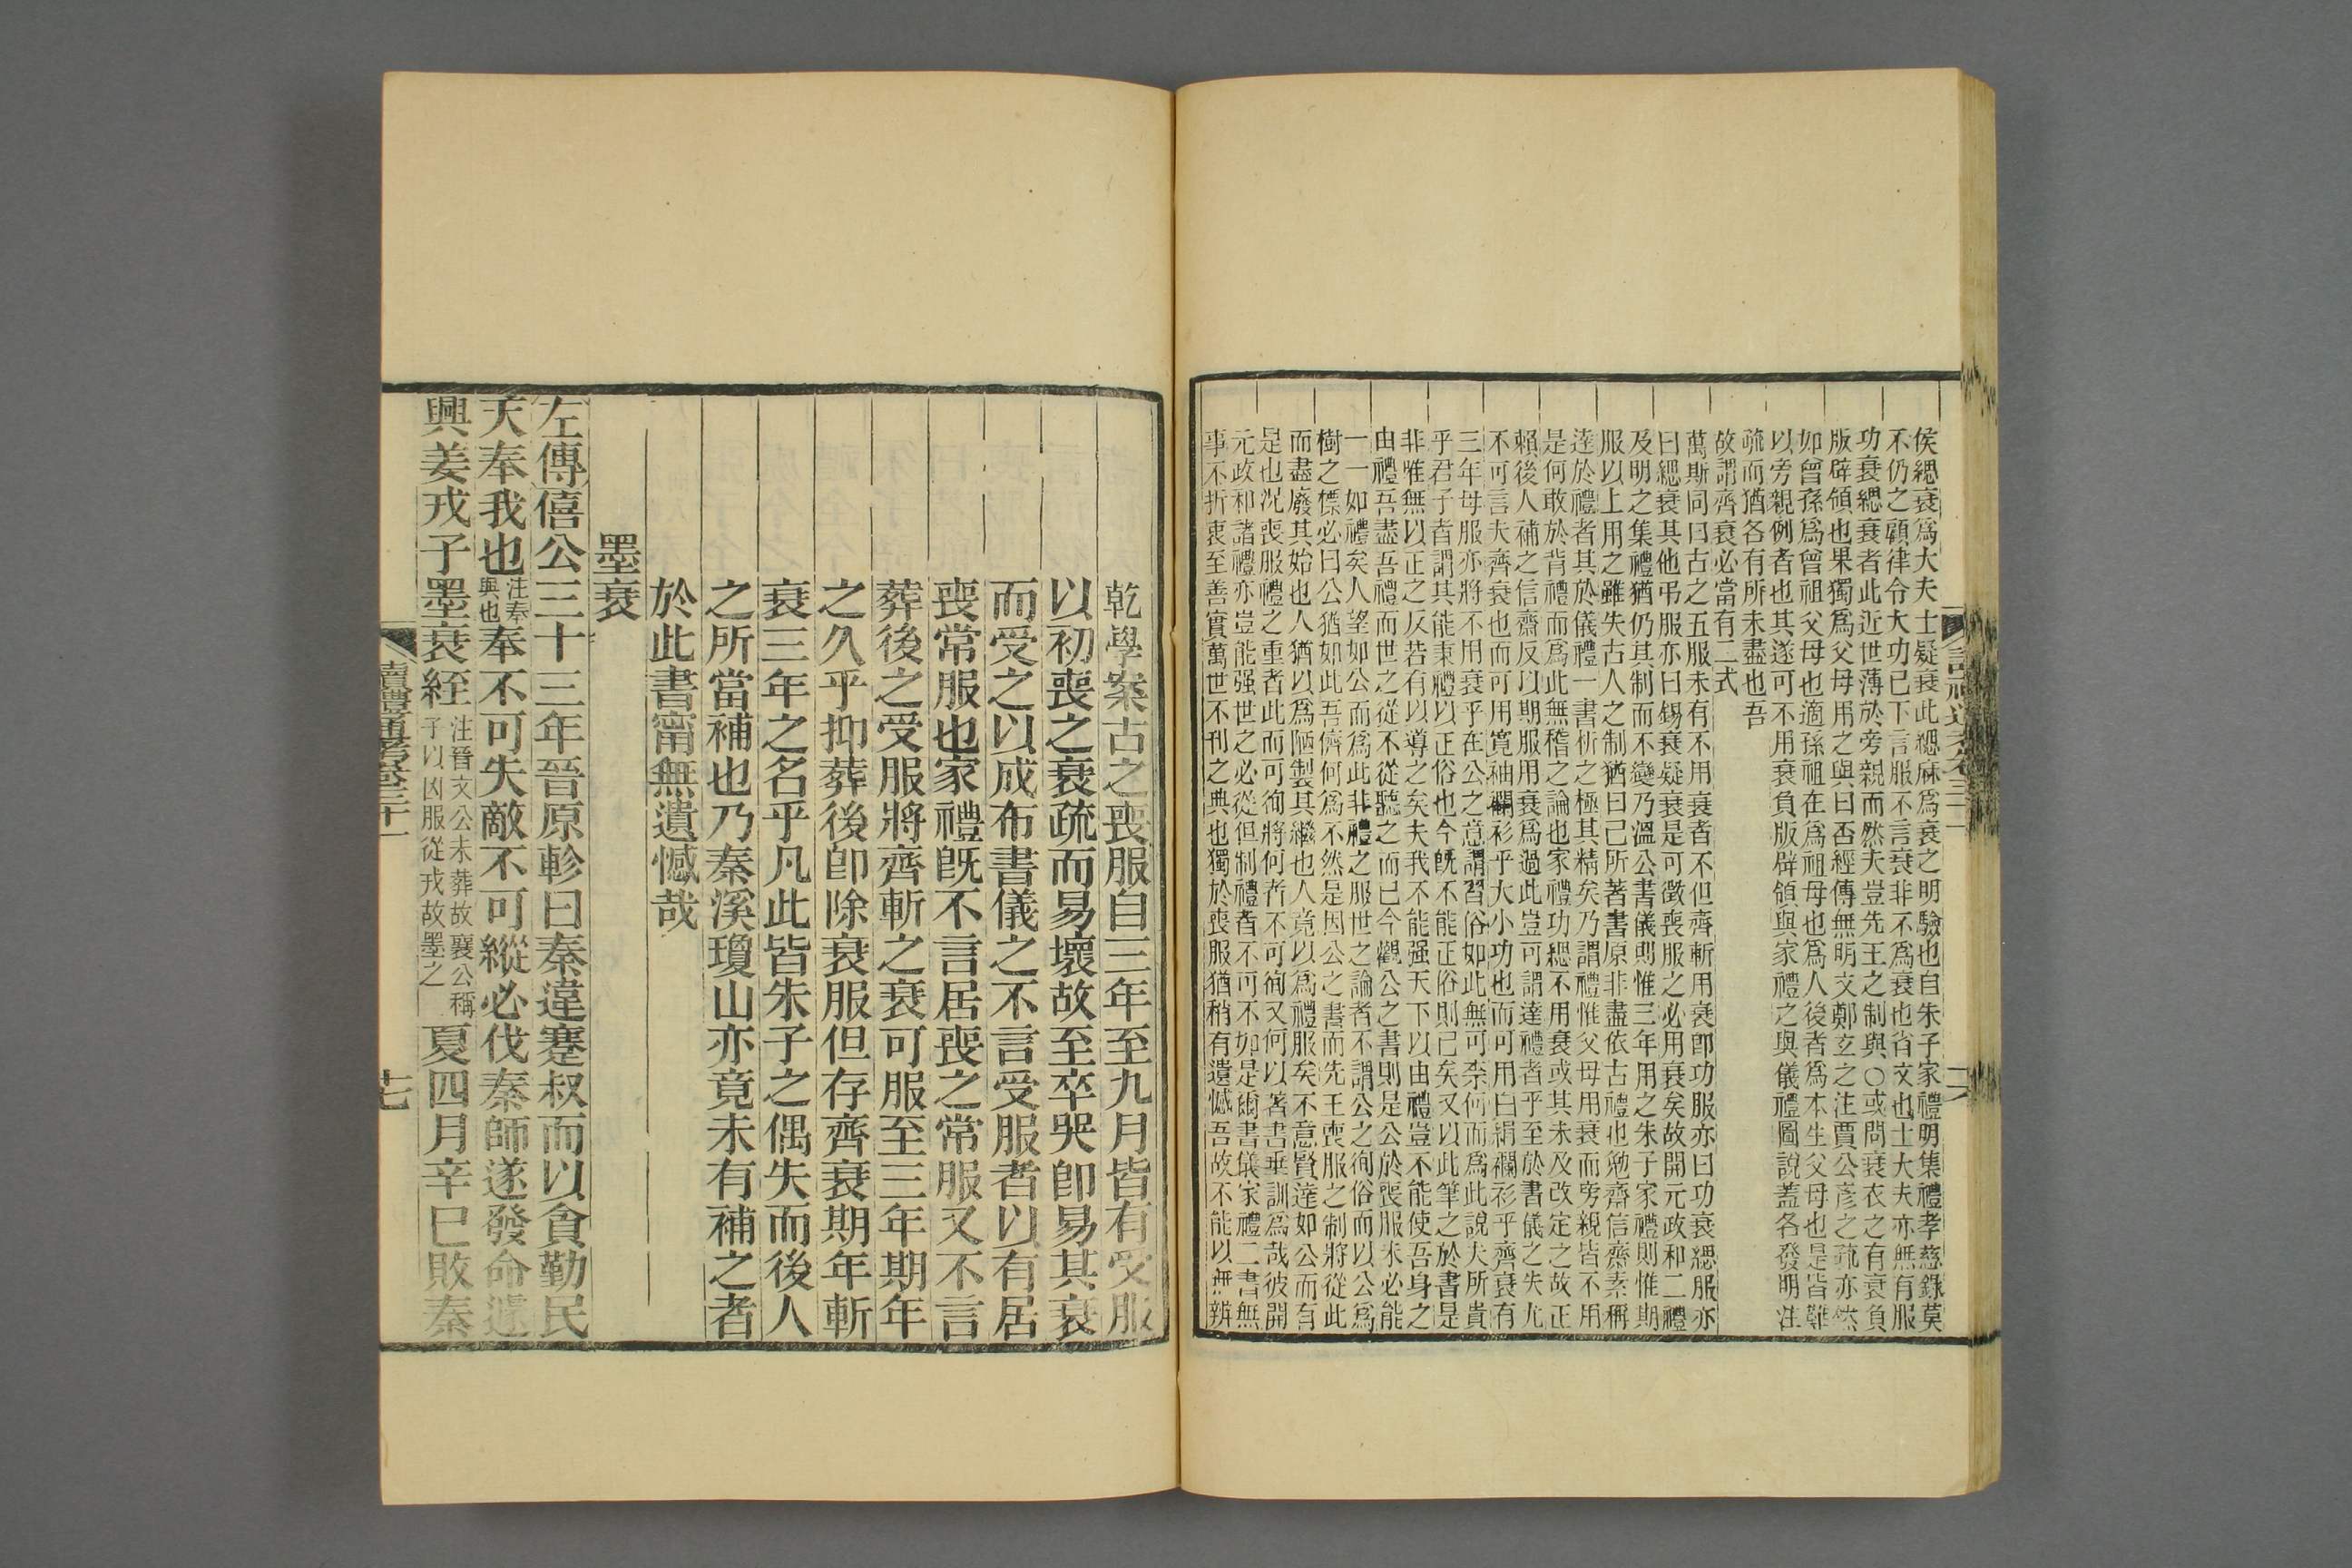 侯緦衰爲大夫士疑衰此緦麻爲衰之明驗也自朱子家禮明集禮孝慈錄莫
不仍之顧律令大功已下言服不言衰非不爲衰也省文也士大夫亦無有服
功衰緦衰者此近世薄於旁親而然夫豈先王之制與○或問衰衣之有衰負
版辟領也果獨爲父母用之與曰否經傳無明文鄭玄之注賈公彦之疏亦然
如曾孫爲曾祖父母也適孫祖在爲祖母也爲人後者爲本生父母也是皆難
以旁親例者也其遂可不用衰負版辟領與家禮之與儀禮圖說蓋各發明注
疏而猶各有所未盡也吾
故謂齊衰必當有二式
萬斯同曰古之五服未有不用衰者不但齊斬用衰卽功服亦曰功衰緦服亦
曰緦衰其他弔服亦曰錫衰疑衰是可徵喪服之必用衰矣故開元政和二禮
及明之集禮猶仍其制而不變乃溫公書儀則惟三年用之朱子家禮則惟期
服以上用之雖失古人之制猶曰己所著書原非盡依古禮也勉齋信齋素稱
逹於禮者其於儀禮一書析之極其精矣乃謂禮惟父母用衰而旁親皆不用
是何敢於背禮而爲此無稽之論也家禮功緦不用衰或其未及改定之故正
賴後人補之信齋反以期服用衰爲過此豈可謂達禮者乎至於書儀之失尤
不可言夫齊衰也而可用寬袖襴衫乎大小功也而可用白絹襴衫乎齊衰有
三年母服亦將不用衰乎在公之意謂習俗如此無可柰何而爲此說夫所貴
乎君子者謂其能秉禮以正俗也今旣不能正俗則已矣又以此筆之於書是
非唯無以正之反若有以導之矣夫我不能强天下以由禮豈不能使吾身之
由禮吾盡吾禮而世之從不從聽之而已今觀公之書則是公於喪服未必能
一一如禮矣人望如公而爲此非禮之服世之論者不謂公之徇俗而以公爲
樹之標必曰公猶如此吾儕何爲不然是因公之書而先王喪服之制將從此
而盡廢其始也人猶以爲陋製其繼也人竟以爲禮服矣不意賢達如公而有
是也况喪服禮之重者此而可徇將何者不可徇又何以著書垂訓爲哉彼開
元政和諸禮亦豈能强世之必從但制禮者不可不如是爾書儀家禮二書無
事不折衷至善實萬世不刊之典也獨於喪服猶稍有遺憾吾故不能以無辨
乾學案古之喪服自三年至九月皆有受服
以初喪之衰疏而易壞故至卒哭卽易其衰
而受之以成布書儀之不言受服者以有居
喪常服也家禮旣不言居喪之常服又不言
葬後之受服將齊斬之衰可服至三年期年
之久乎抑葬後卽除衰服但存齊衰期年斬
衰三年之名乎凡此皆朱子之偶失而後人
之所當補也乃秦溪瓊山亦竟未有補之者
於此書甯無遺憾哉
墨衰
左傳僖公三十三年晉原軫曰秦違蹇叔而以貪勤民
天奉我也注奉與也奉不可失敵不可縱必伐秦師遂發命遽
興姜戎子墨衰絰注晉文公未葬故襄公稱子以凶服從戎故墨之夏四月辛巳敗秦
讀禮通考卷三十一
十七